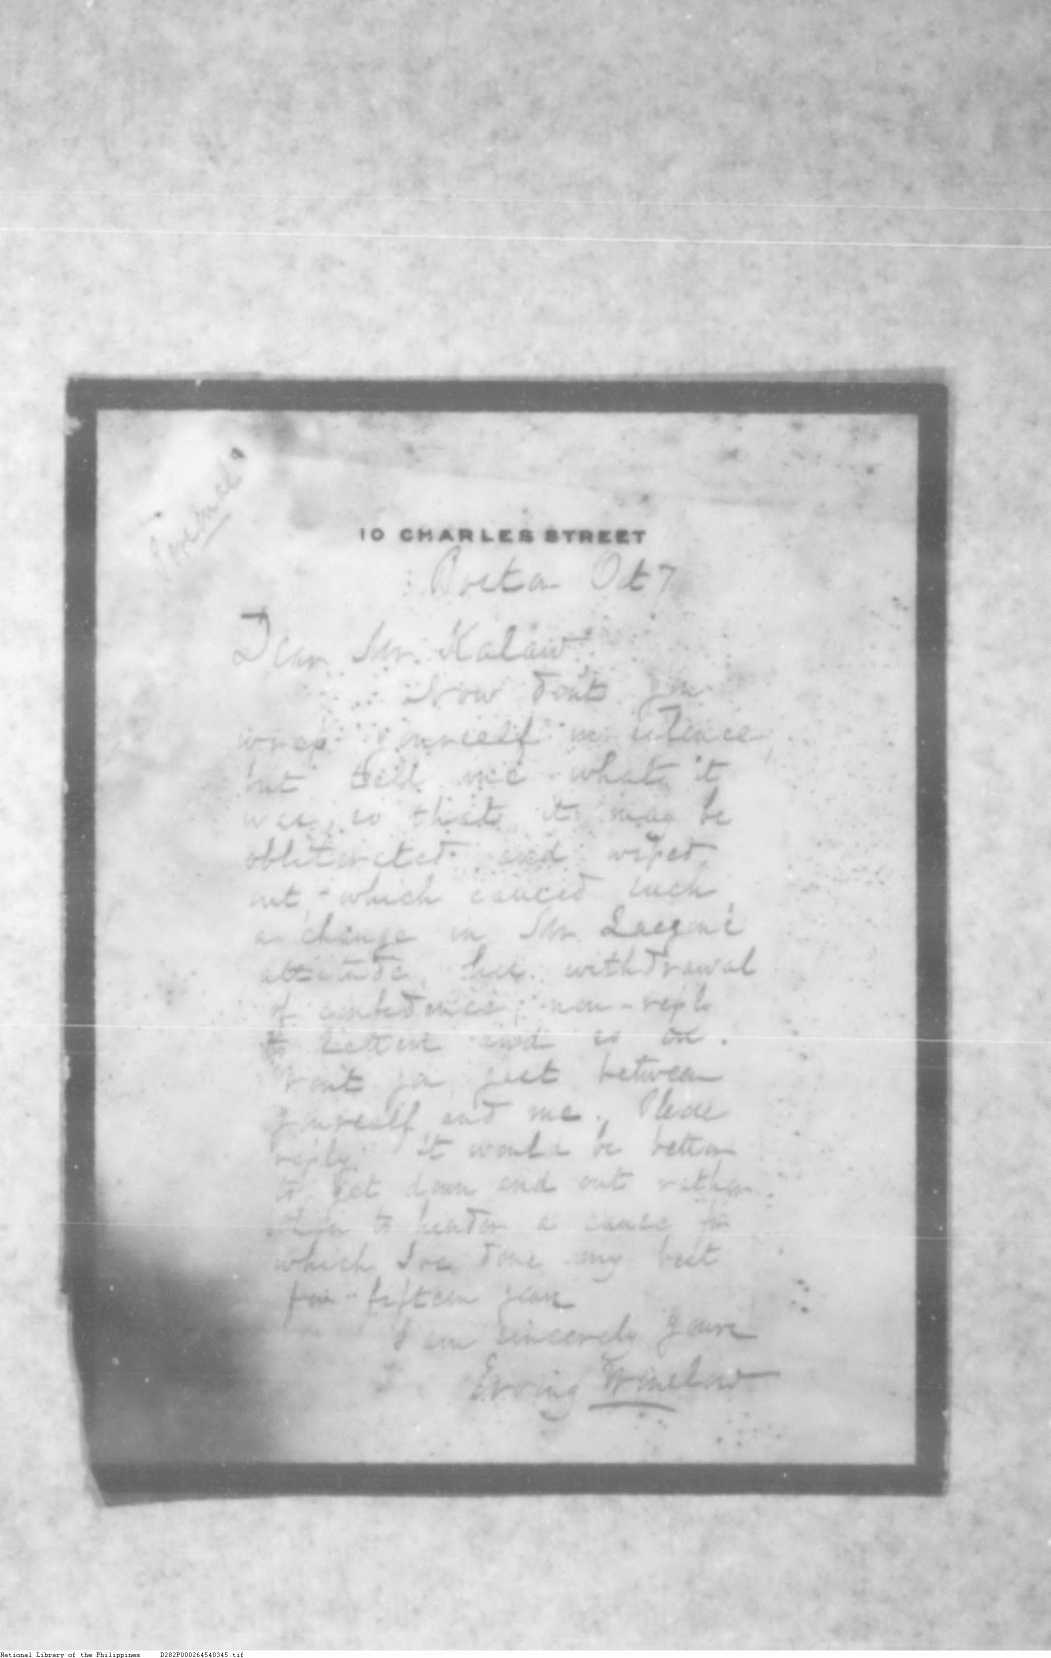 Personal
10 CHARLES STREET
Boston Oct 7
Dear Mr. Kalaw
Now don't you
wrap yourself in silence,
but tell me what it
was, so that it may be
obliterated and wiped
out, - which caused such
a change in Mr Quezon's
attitude, his withdrawal
of confidence, non-reply
to letters and so on.
Wont you just between
yourself and me. Please
reply. It would be better
to get down and out rather
than to hinder a cause for
which I've done my best
for fifteen years
I am sincerely yours
Erving Winslow
National Library of the Philippines D282P000264540345.tif